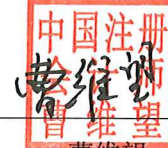 中国注册
会计师
曹维望
曹维望